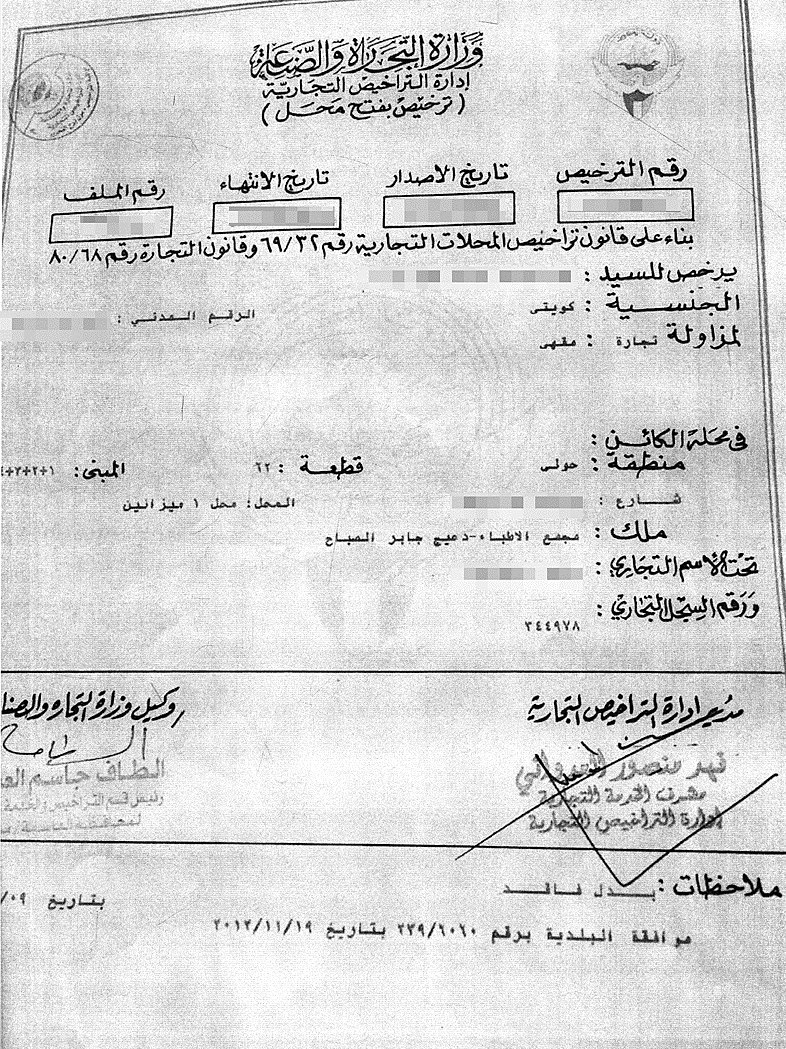 وزارة التجارة والصناعة
إدارة التراخيص التجارية
(ترخيص بفتح محل)
رقم الترخيص تاريخ الاصدار تاريخ الانتهاء رقم الملف
بناء على قانون تراخيص المحلات التجارية رقم ٦٩/٣٢ وقانون التجارة رقم ٨٠/٦٨
يرخص للسيد :
الجنسية : كويتى الرقم المدني :
لمزاولة تجارة : مقهى
فى محله الكائن :
منطقة : حولى قطعة : ٦٢ المبنى : ١+٢+٣+٤
شارع : المحل: محل ١ ميزانين
ملك : مجمع الاطباء-دعيج جابر الصباح
تحت الاسم التجاري :
ورقم السجل التجاري :
٣٤٤٩٧٨
مدير ادارة التراخيص التجارية وكيل وزارة التجاره والصنا
فهد منصور الطاف جاسم
مشرف الخدمة التجارية رئيس قسم التراخيص
إدارة التراخيص التجارية
ملاحظات : بدل فاقد بتاريخ ٠٩/
موافقة البلدية برقم ٢٣٩/٦٠٦٠ بتاريخ ٢٠١٢/١١/١٩